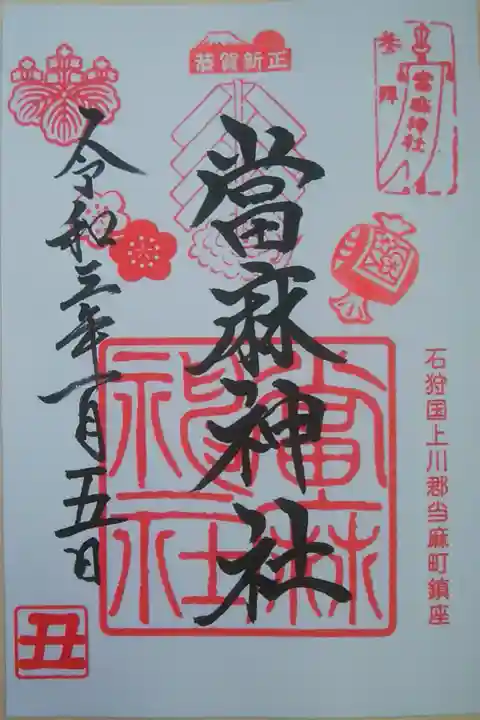 恭賀新正
参拝
當麻神社
當麻神社
當麻神社
石狩国上川郡当麻町鎮座
令和三年一月五日
丑